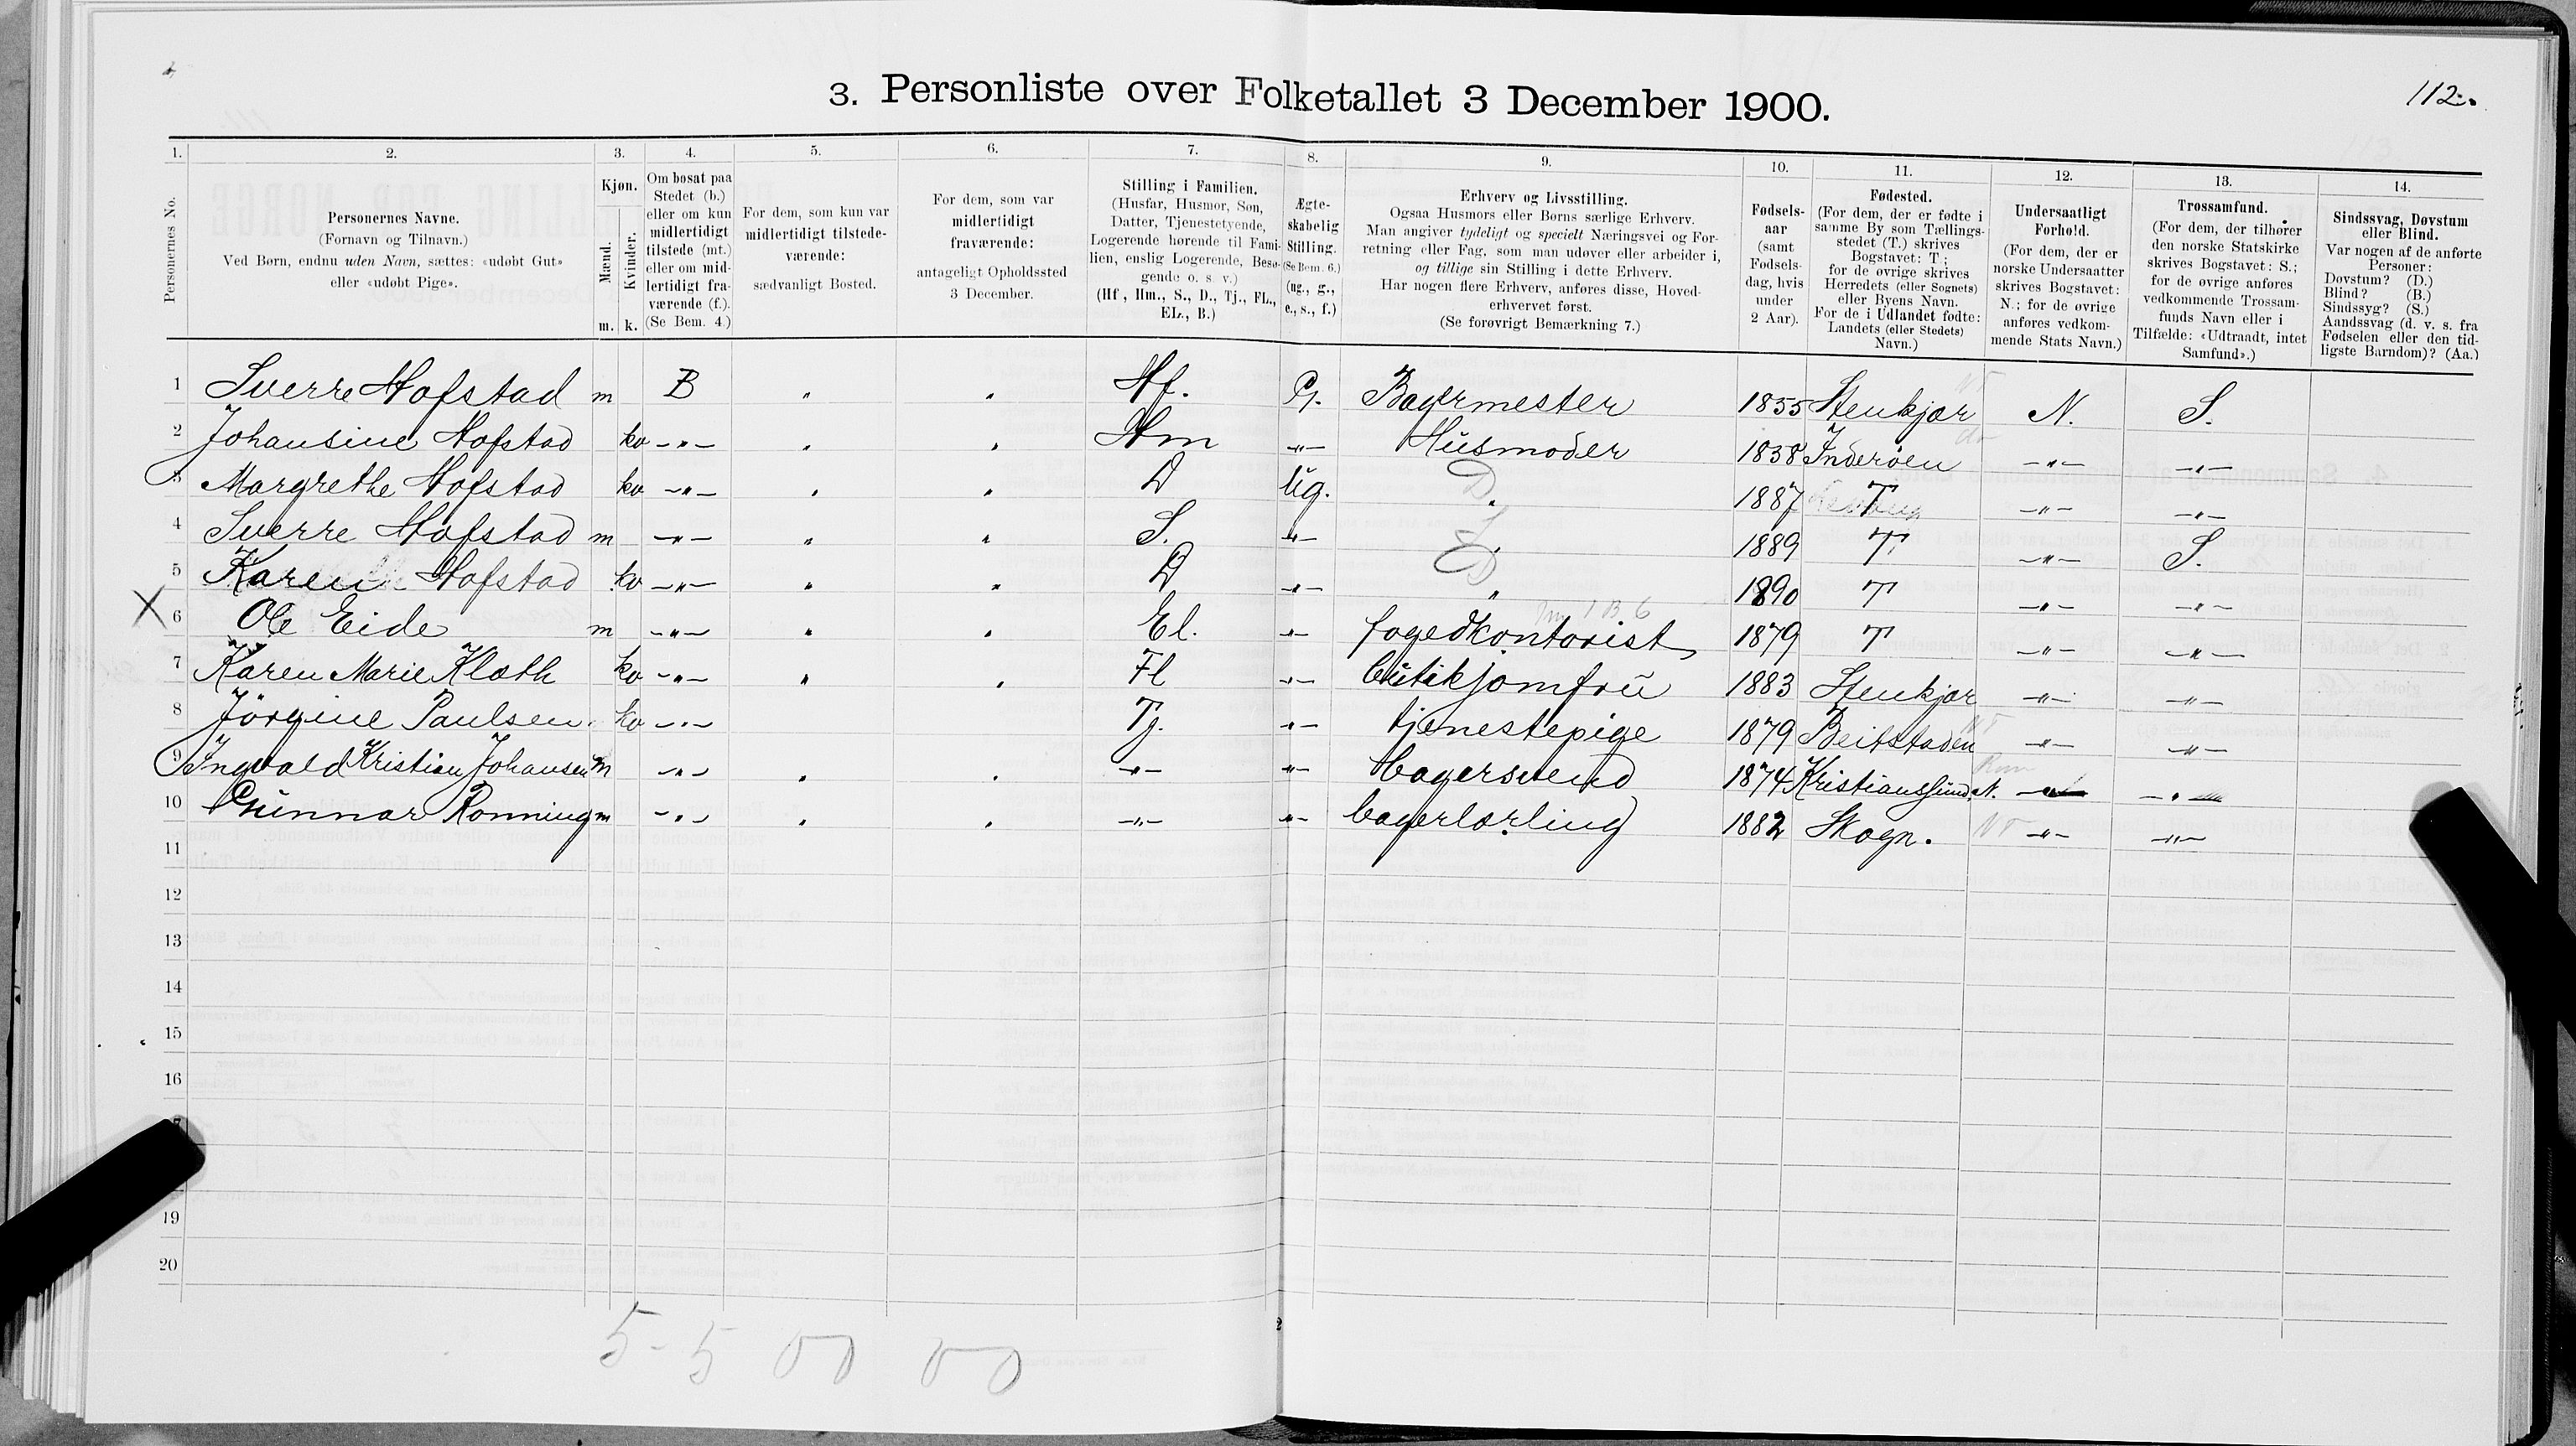 3. Personliste over Folketallet 3 December 1900.
112.
1. 2. 3. 4. 5. 6. 7. 8. 9. 10. 11. 12. 13. 14.
Personernes No.
Personernes Navne.
(Fornavn og Tilnavn.)
Ved Børn, endnu uden Navn, sættes: «udøbt Gut»
eller «udøbt Pige».
Kjøn.
Mænd.
Kvinder.
m. k.
Om bosat paa
Stedet (b.)
eller om kun
midlertidigt
tilstede (mt.)
eller om mid-
lertidigt fra-
værende (f.).
(Se Bem. 4.)
For dem, som kun var
midlertidigt tilstede-
værende:
sædvanligt Bosted.
For dem, som var
midlertidigt
fraværende:
antageligt Opholdssted
3 December.
Stilling i Familien.
(Husfar, Husmor, Søn,
Datter, Tjenestetyende,
Logerende hørende til Fami-
lien, enslig Logerende, Besø-
gende o. s. v.)
(Hf., Hm., S., D., Tj., FL.,
EL., B.)
Ægte-
skabelig
Stilling.
(Se Bem. 6.)
(ug., g.,
e., s., f.)
Erhverv og Livsstilling.
Ogsaa Husmors eller Børns særlige Erhverv.
Man angiver tydeligt og specielt Næringsvei og For-
retning eller Fag, som man udøver eller arbeider i,
og tillige sin Stilling i dette Erhverv.
Har nogen flere Erhverv, anføres disse, Hoved-
erhvervet først.
(Se forøvrigt Bemærkning 7.)
Fødsels-
aar
(samt
Fødsels-
dag, hvis
under
2 Aar).
Fødested.
(For dem, der er fødte i
samme By som Tællings-
stedet (T.) skrives
Bogstavet: T;
for de øvrige skrives
Herredets (eller Sognets)
eller Byens Navn.
For de i Udlandet fødte:
Landets (eller Stedets)
Navn.)
Undersaatligt
Forhold.
(For dem, der er
norske Undersaatter
skrives Bogstavet:
N.; for de øvrige
anføres vedkom-
mende Stats Navn.)
Trossamfund.
(For dem, der tilhører
den norske Statskirke
skrives Bogstavet: S.;
for de øvrige anføres
vedkommende Trossam-
funds Navn eller i
Tilfælde: «Udtraadt, intet
Samfund».)
Sindssvag, Døvstum
eller Blind.
Var nogen af de anførte
Personer:
Døvstum? (D.)
Blind? (B.)
Sindssyg? (S.)
Aandssvag (d. v. s. fra
Fødselen eller den tid-
ligste Barndom)? (Aa.)
1 Sverre Hofstad m B " " Hf. G. Bagermester 1855 Stenkjær N. S.
2 Johansine Hofstad kv -"- " " Hm -"- Husmoder 1838 Inderöen -"- -"-
3 Margrethe Hofstad kv -"- " " D Ug. D " 1887 T -"- -"-
4 Sverre Hofstad m -"- " " S. -"- S " 1889 T -"- S.
5 Karen Hofstad kv -"- " " D -"- D " 1890 T -"- -"-
X 6 Ole Eide m -"- " " El. -"- fogedkontorist 1879 T -"- -"-
7 Karen Marie Kloth kv -"- " " Fl -"- butikjomfru 1883 Stenkjær -"- -"-
8 Jörgine Paulsen kv -"- Tj. -"- tjenestepige 1879 Beitstaden -"- -"-
9 Ingvald Kristian Johansen m -"- " " -"- -"- bagersvend 1874 Kristianssund N. -"- -"-
10 Gunnar Ronning m -"- " " -"- -"- bagerlærling 1882 Skogn. -"- -"-
11
12
13
14
15
16
7
19
20
2
5 - 5 00 00